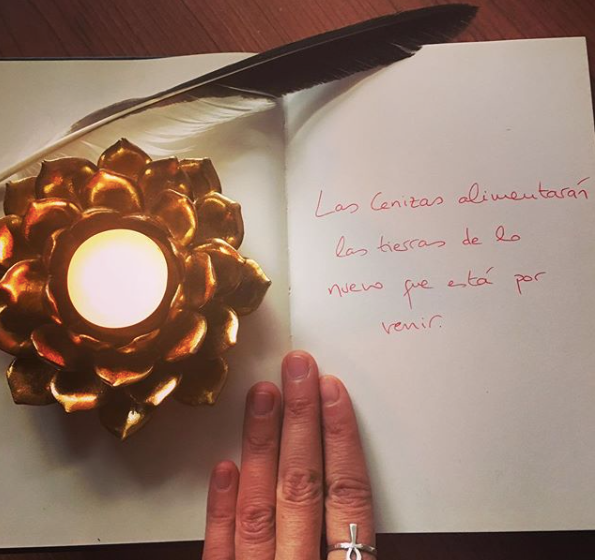 Las Cenizas alimentarán
las tierras de lo
nuevo que está por
venir.